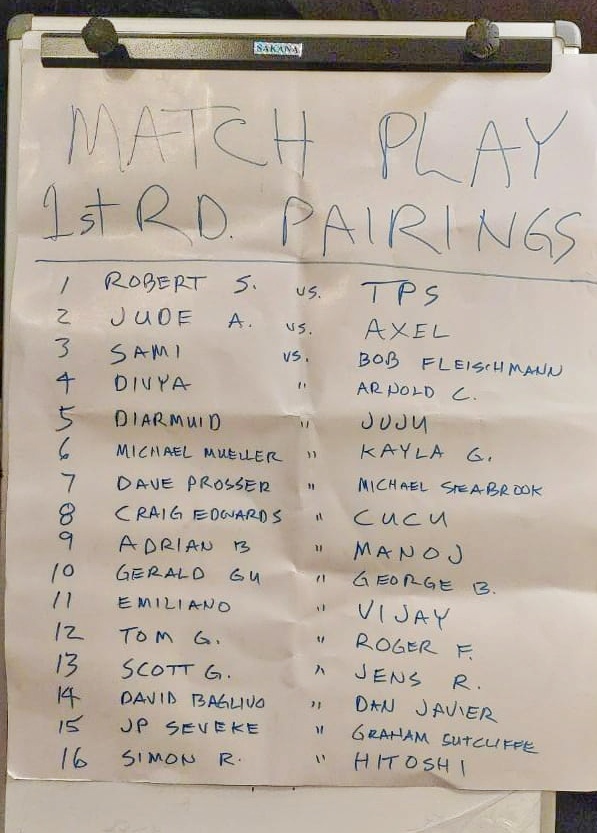 SAKANA
MATCH PLAY
1st RD. PAIRINGS
1 ROBERT S. vs. TPS
2 JUDE A. vs. AXEL
3 SAMI vs. BOB FLEISCHMANN
4 DIVYA " ARNOLD C.
5 DIARMUID " JUJU
6 MICHAEL MUELLER " KAYLA G.
7 DAVE PROSSER " MICHAEL SEABROOK
8 CRAIG EDWARDS " CUCU
9 ADRIAN B " MANOJ
10 GERALD GU " GEORGE B.
11 EMILIANO " VIJAY
12 TOM G. " ROGER F.
13 SCOTT G. " JENS R.
14 DAVID BAGLIVO " DAN JAVIER
15 JP SEVEKE " GRAHAM SUTCLIFFE
16 SIMON R. " HITOSHI